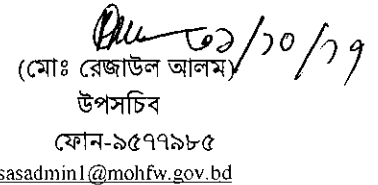 ০১/১০/১৭
(মোঃ রেজাউল আলম)
উপসচিব
ফোন-৯৫৭৭৯৮৫
sasadmin1@mohfw.gov.bd